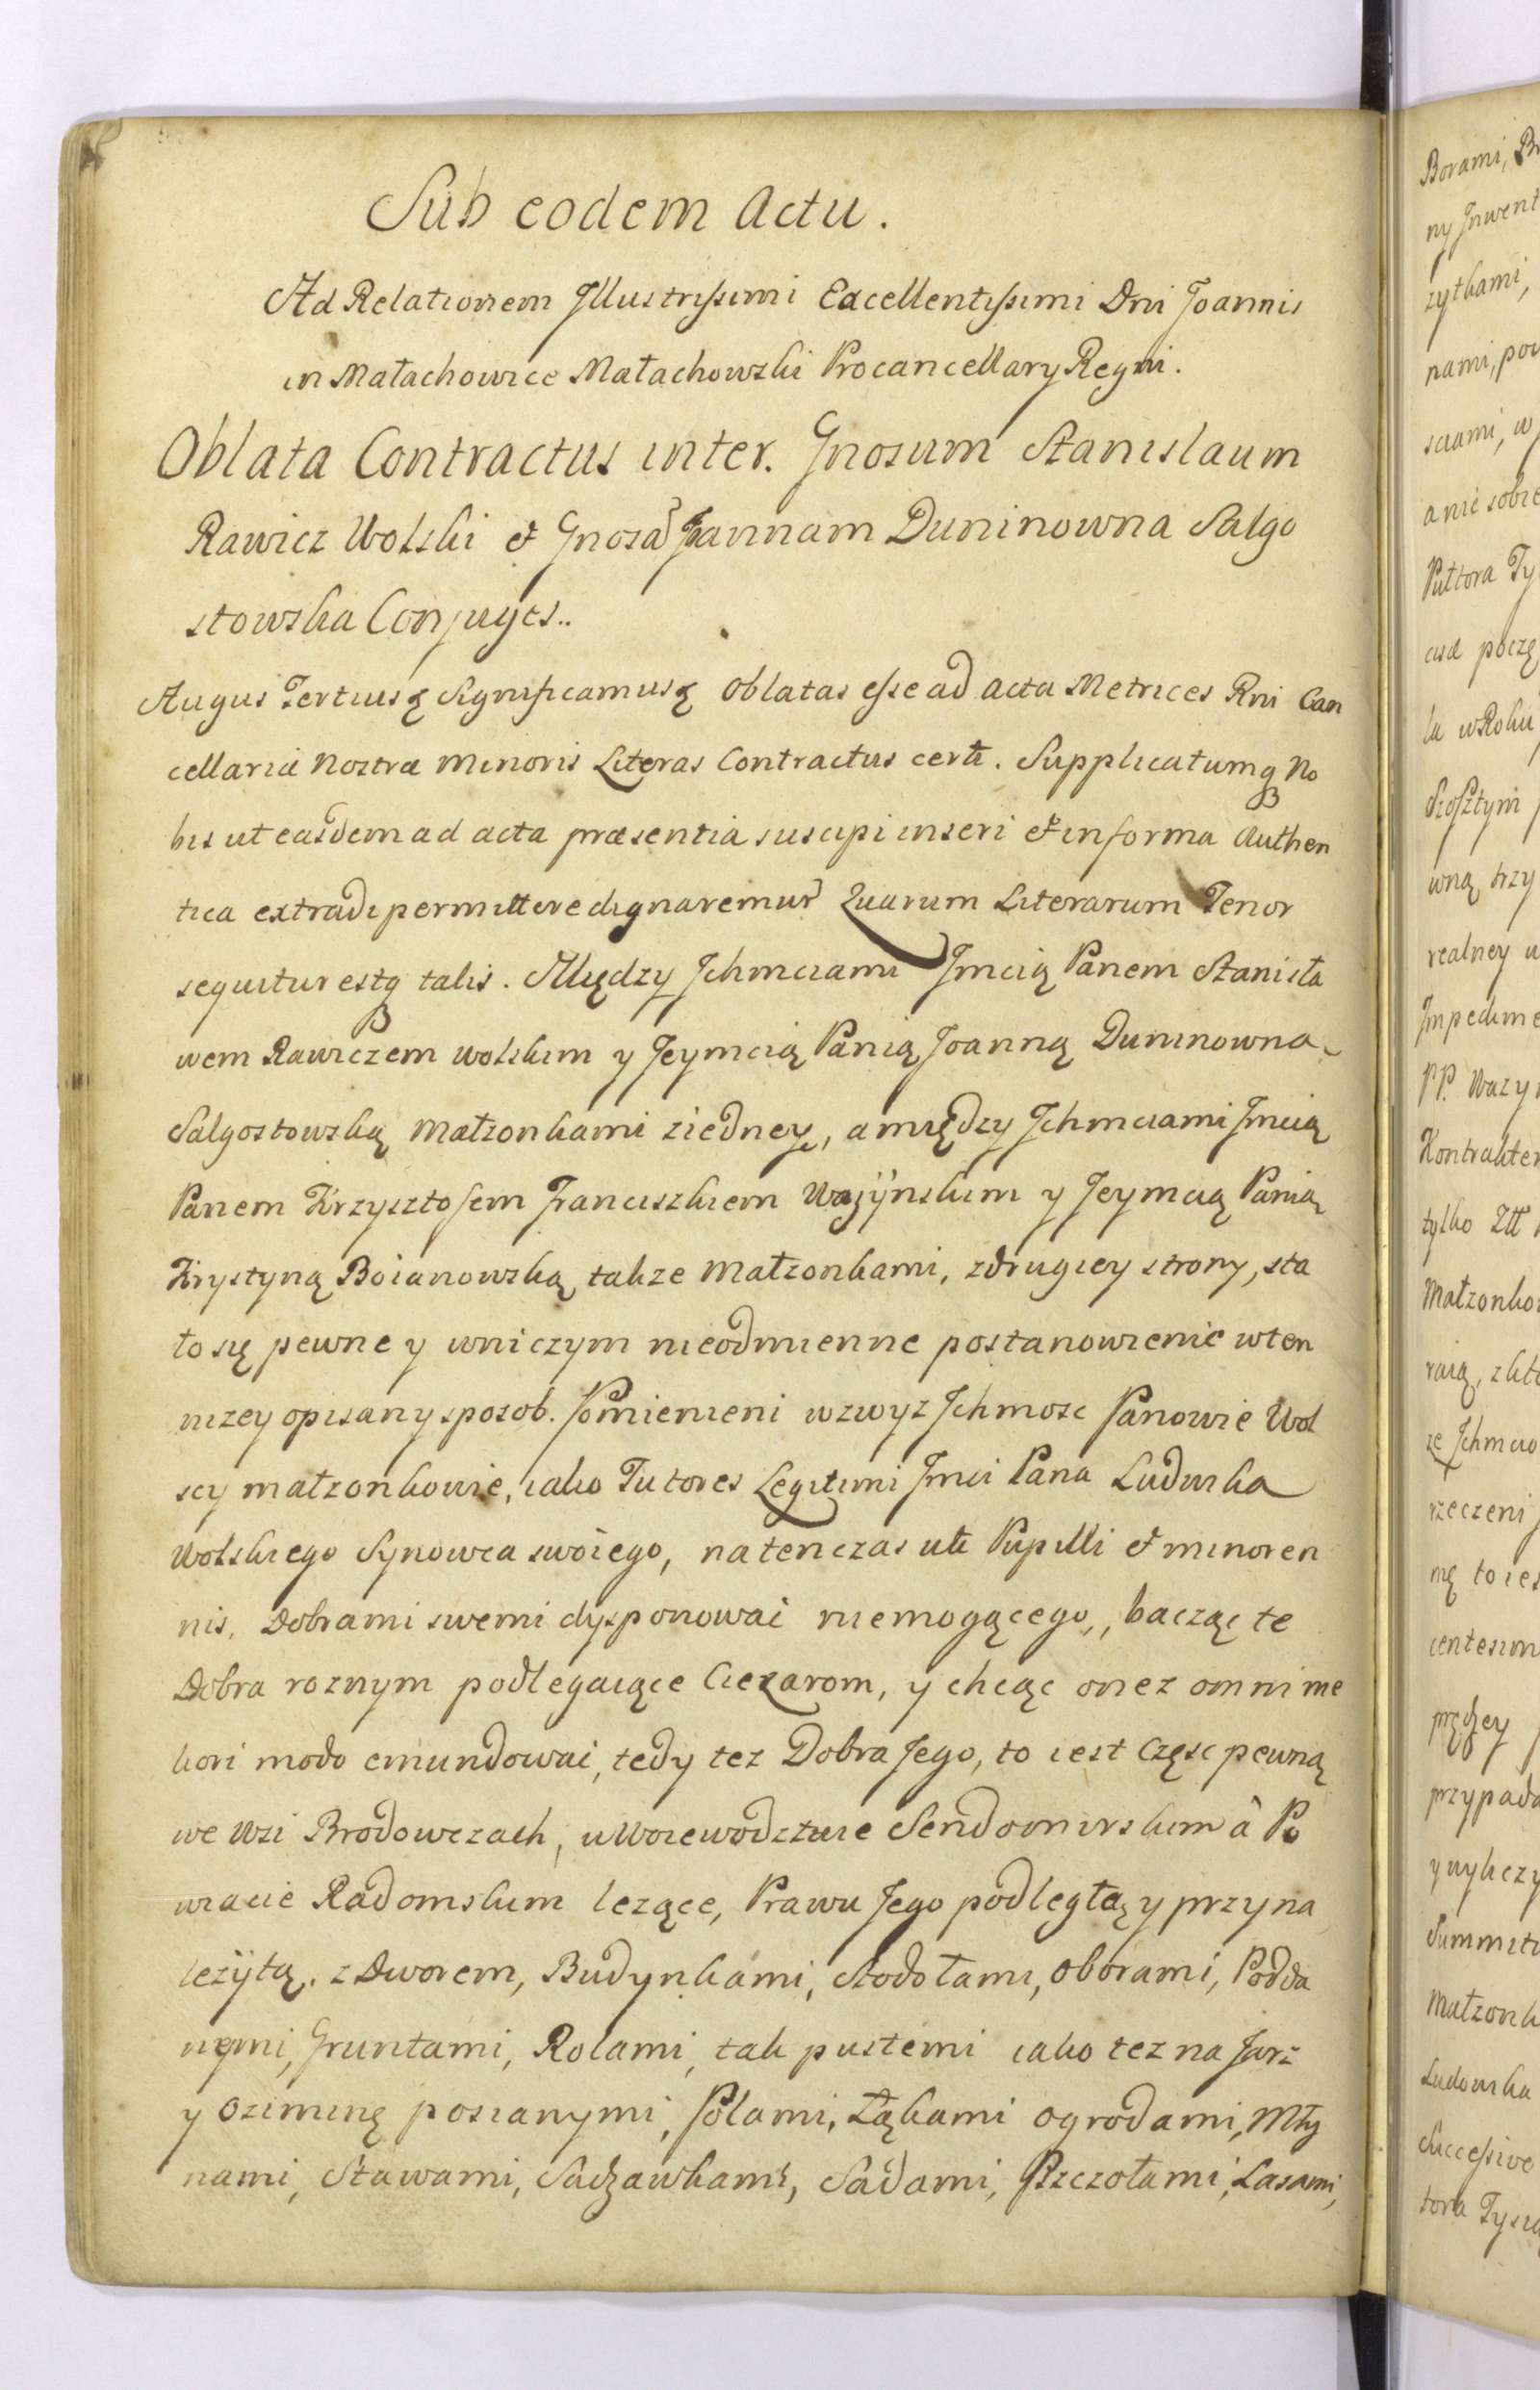 Sub eodem Actu.
Ad Relationem Jllustrissimi Excellentissimi Dni Joannis
in Małachowice Małachowski Procancellary Regni.
Oblata Contractus inter. Gnosum Stanislaum
Rawicz Wolski et Gnosā Joannam Duninowna Salgo
stowska Conjuges..
Augus Tertius ꝗ Significamusꝗ Oblatas esse ad Acta Metrices Rni Can
cellariæ Nostræ Minoris Literas Contractus certi. Supplicatumqꝫ No
bis ut easdem ad acta præsentia suscipi inseri et in forma Authen
tica extradi permittere dignaremur Quarum Literarum Tenor
sequitur estqꝫ talis. Między Jchmciami Jmcią Panem Stanisła
wem Rawiczem Wolskim y Jeymcią Panią Joanną Duninowną
Salgostowską Małzonkami ziedney, a między Jchmciami Jmcią
Panem Krzysztofem Franciszkiem Ważÿnskim y Jeymcią Panią
Krystyną Boianowską także Małzonkami, zdrugiey strony, sta
ło się pewne y wniczym nieodmienne postanowienie wten
nizey opisany sposob. Pomienieni wzwyz Jchmosc Panowie Wol
scy małzonkowie, iako Tutores Legitimi Jmci Pana Ludwika
Wolskiego Synowca swoiego, natenczas uti Pupilli et minoren
nis, Dobrami swemi dysponowac niemogącego,, bacząc te
Dobra roznym podlegaiące Ciezarom, y chcąc onez omni me
liori modo emundowac, tedy tez Dobra Jego, to iest Częsc pewną
we Wsi Brodowczach, w Woiewodztwie Sendomirskim â Po
wiacie Radomskim lezące, Prawu Jego podległą y przyna
leżÿtą. z Dworem, Budynkami, Stodołami, Oborami, Podda
nemi, Gruntami, Rolami, tak pustemi iako tez na Jarż
y Oziminę posianymi, Polami, Łąkami ogrodami, Mły
nami, Stawami, Sadzawkami, Sadami, Pszczołami, Lasami,